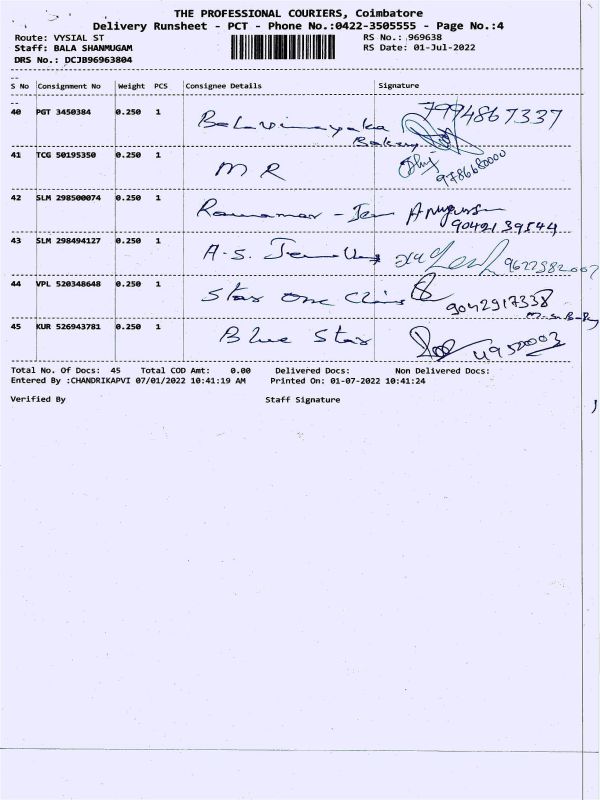 THE PROFESSIONAL COURIERS, Coimbatore
Delivery Runsheet - PCT - Phone No.:0422-3505555 - Page No.:4
Route: VYSIAL ST RS No.: 969638
Staff: BALA SHANMUGAM RS Date: 01-Jul-2022
DRS No.: DCJB96963804
S No Consignment No Weight PCS Consignee Details Signature
40 PGT 3450384 0.250 1 Balavinayaka Bakery 7994867337
41 TCG 50195350 0.250 1 M R 9786680000
42 SLM 298500074 0.250 1 9042139544
43 SLM 298494127 0.250 1 A.S.
44 VPL 520348648 0.250 1 Star One 9042917338
45 KUR 526943781 0.250 1 Blue Star
Total No. Of Docs: 45 Total COD Amt: 0.00 Delivered Docs: Non Delivered Docs:
Entered By :CHANDRIKAPVI 07/01/2022 10:41:19 AM Printed On: 01-07-2022 10:41:24
Verified By Staff Signature